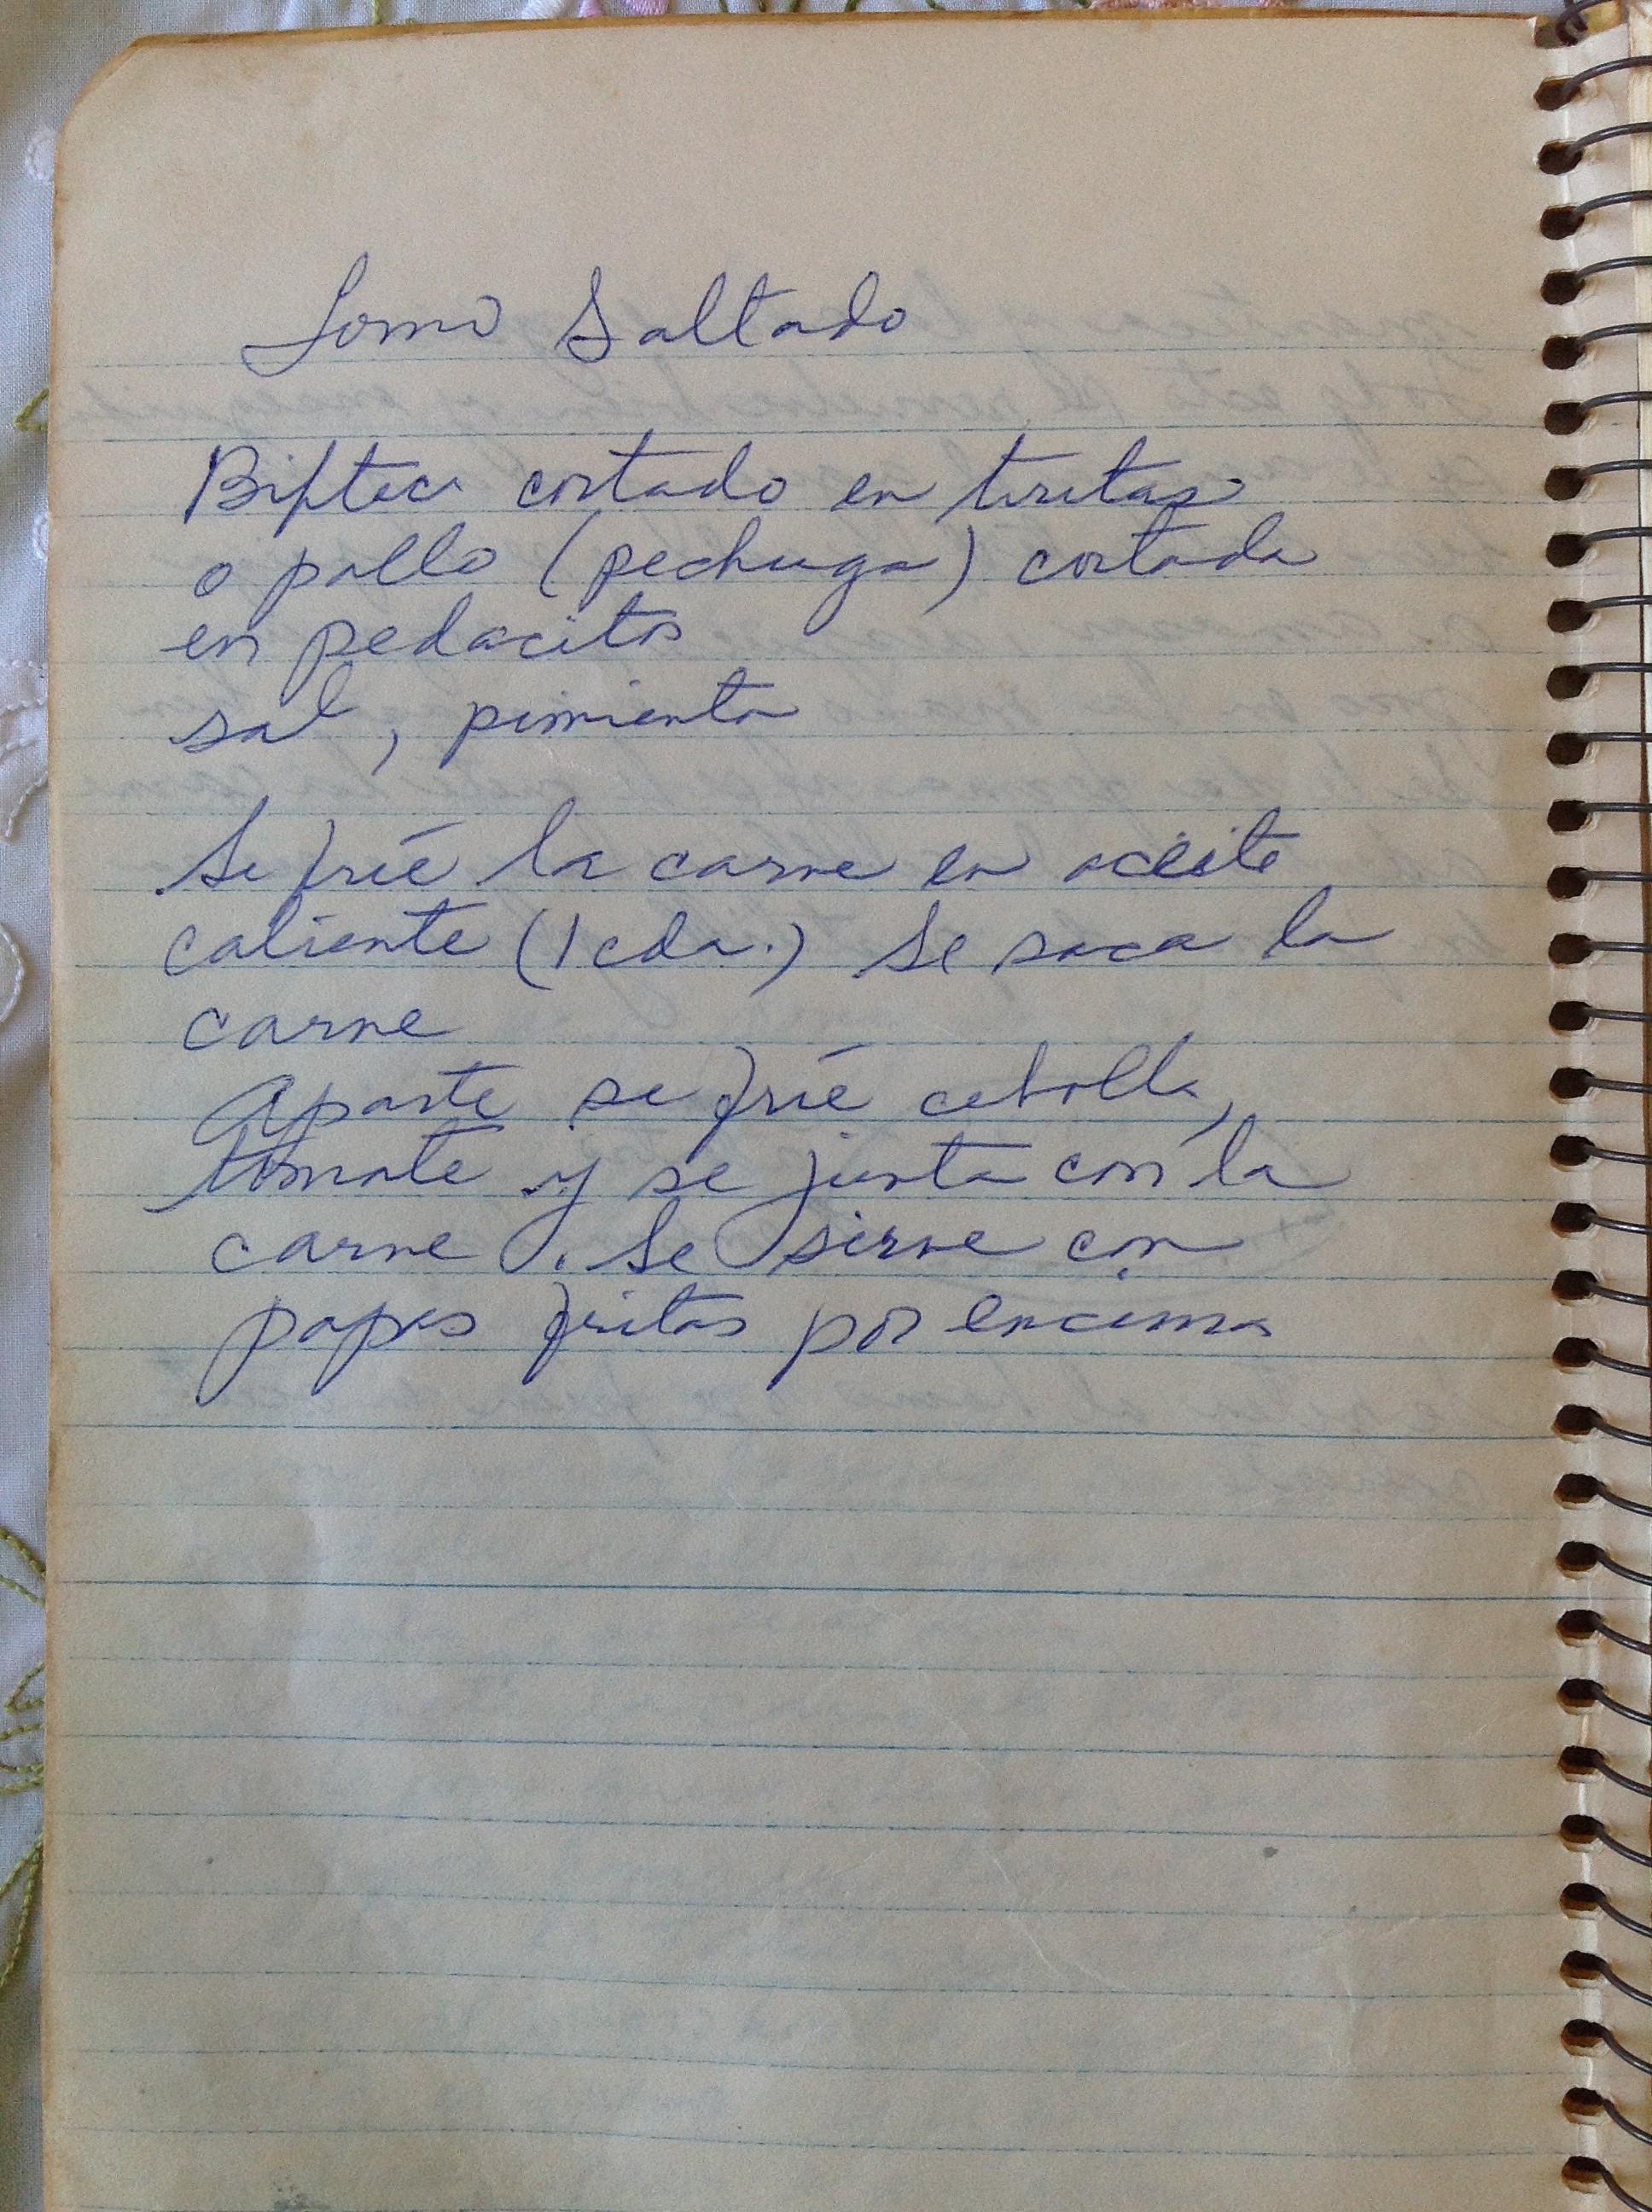 Lomo Saltado
Biftec cortado en tiritas
o pollo (pechuga) cortada
en pedacitos
sal, pimienta
Se fríe la carne en aceite
caliente (1 cda.) Se saca la
carne
Aparte se fríe cebolla,
tomate y se junta con la
carne. Se sirve con
papas fritas por encima